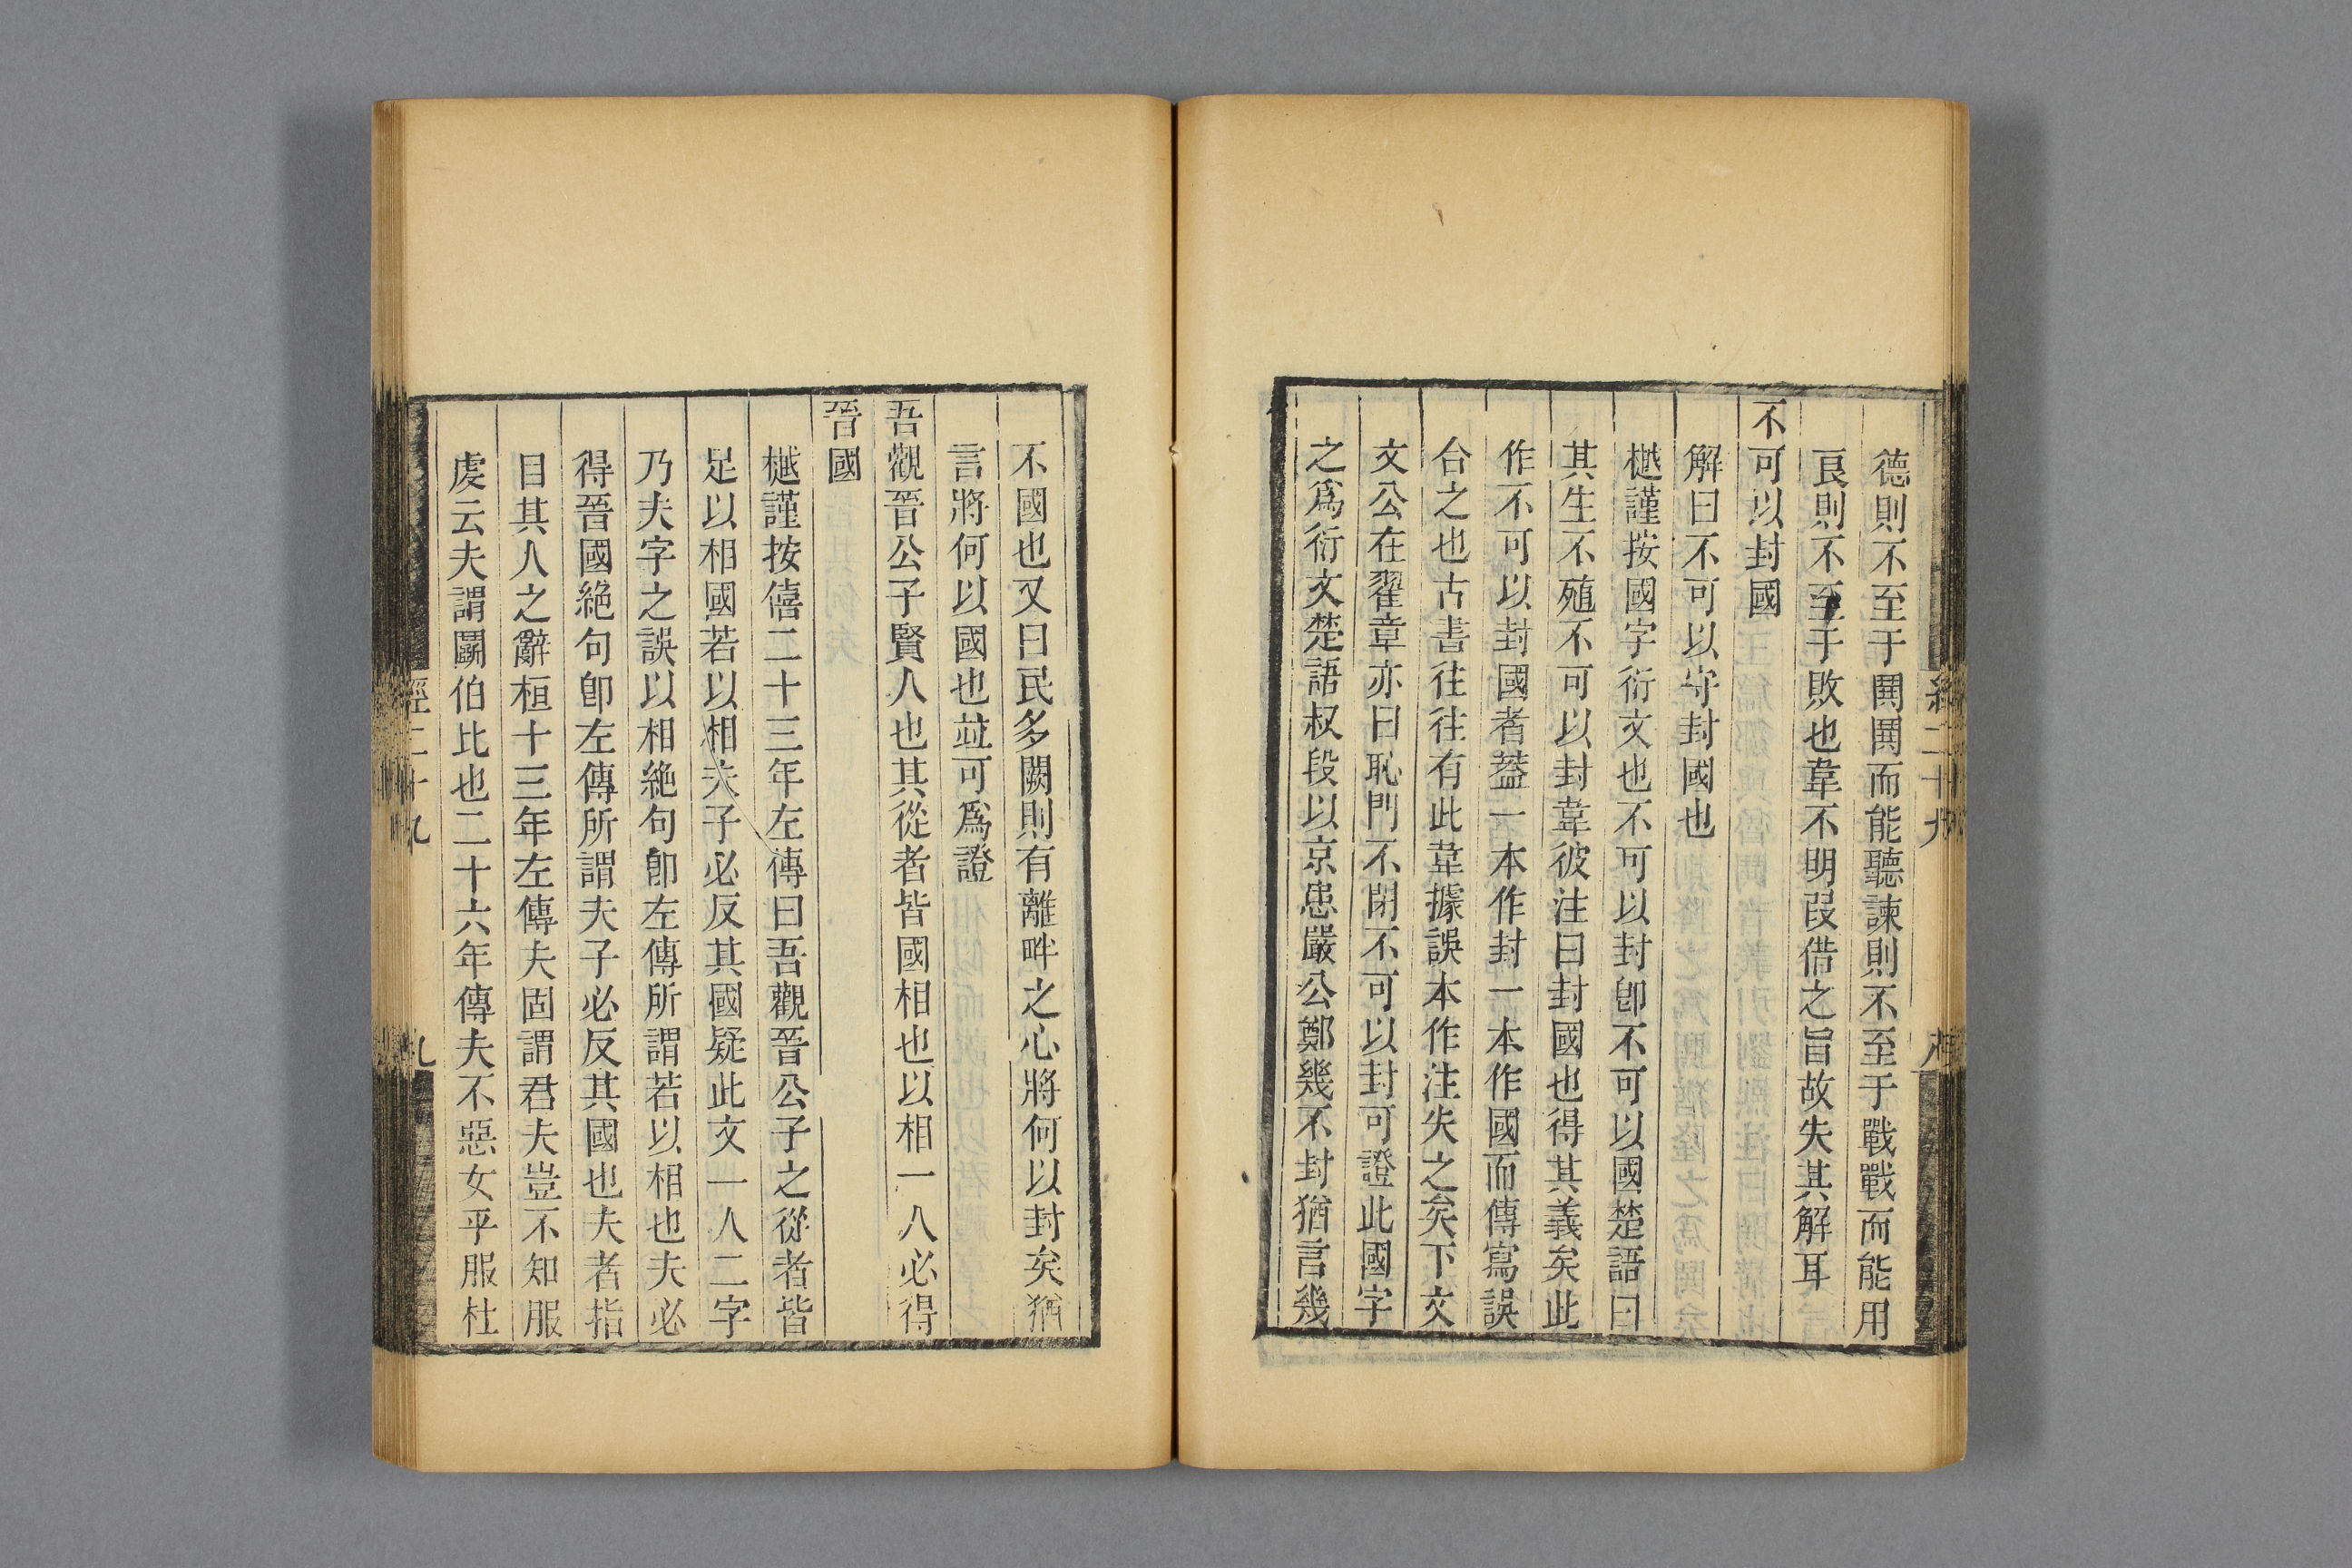 德則不至于鬭鬭而能聽諫則不至于戰戰而能用
良則不至于敗也韋不明叚借之旨故失其解耳
不可以封國
解曰不可以守封國也
樾謹按國字衍文也不可以封卽不可以國楚語曰
其生不殖不可以封韋彼注曰封國也得其義矣此
作不可以封國者葢一本作封一本作國而傳寫誤
合之也古書往往有此韋據誤本作注失之矣下文
文公在翟章亦曰恥門不閉不可以封可證此國字
之爲衍文楚語叔段以京患嚴公鄭幾不封猶言幾
不國也又曰民多闕則有離畔之心將何以封矣猶
言將何以國也竝可爲證
吾觀晉公子賢人也其從者皆國相也以相一人必得
晉國
樾謹按僖二十三年左傳曰吾觀晉公子之從者皆
足以相國若以相夫子必反其國疑此文一人二字
乃夫字之誤以相絶句卽左傳所謂若以相也夫必
得晉國絶句卽左傳所謂夫子必反其國也夫者指
目其人之辭桓十三年左傳夫固謂君夫豈不知服
虔云夫謂鬭伯比也二十六年傳夫不惡女乎服杜
經二十九
九